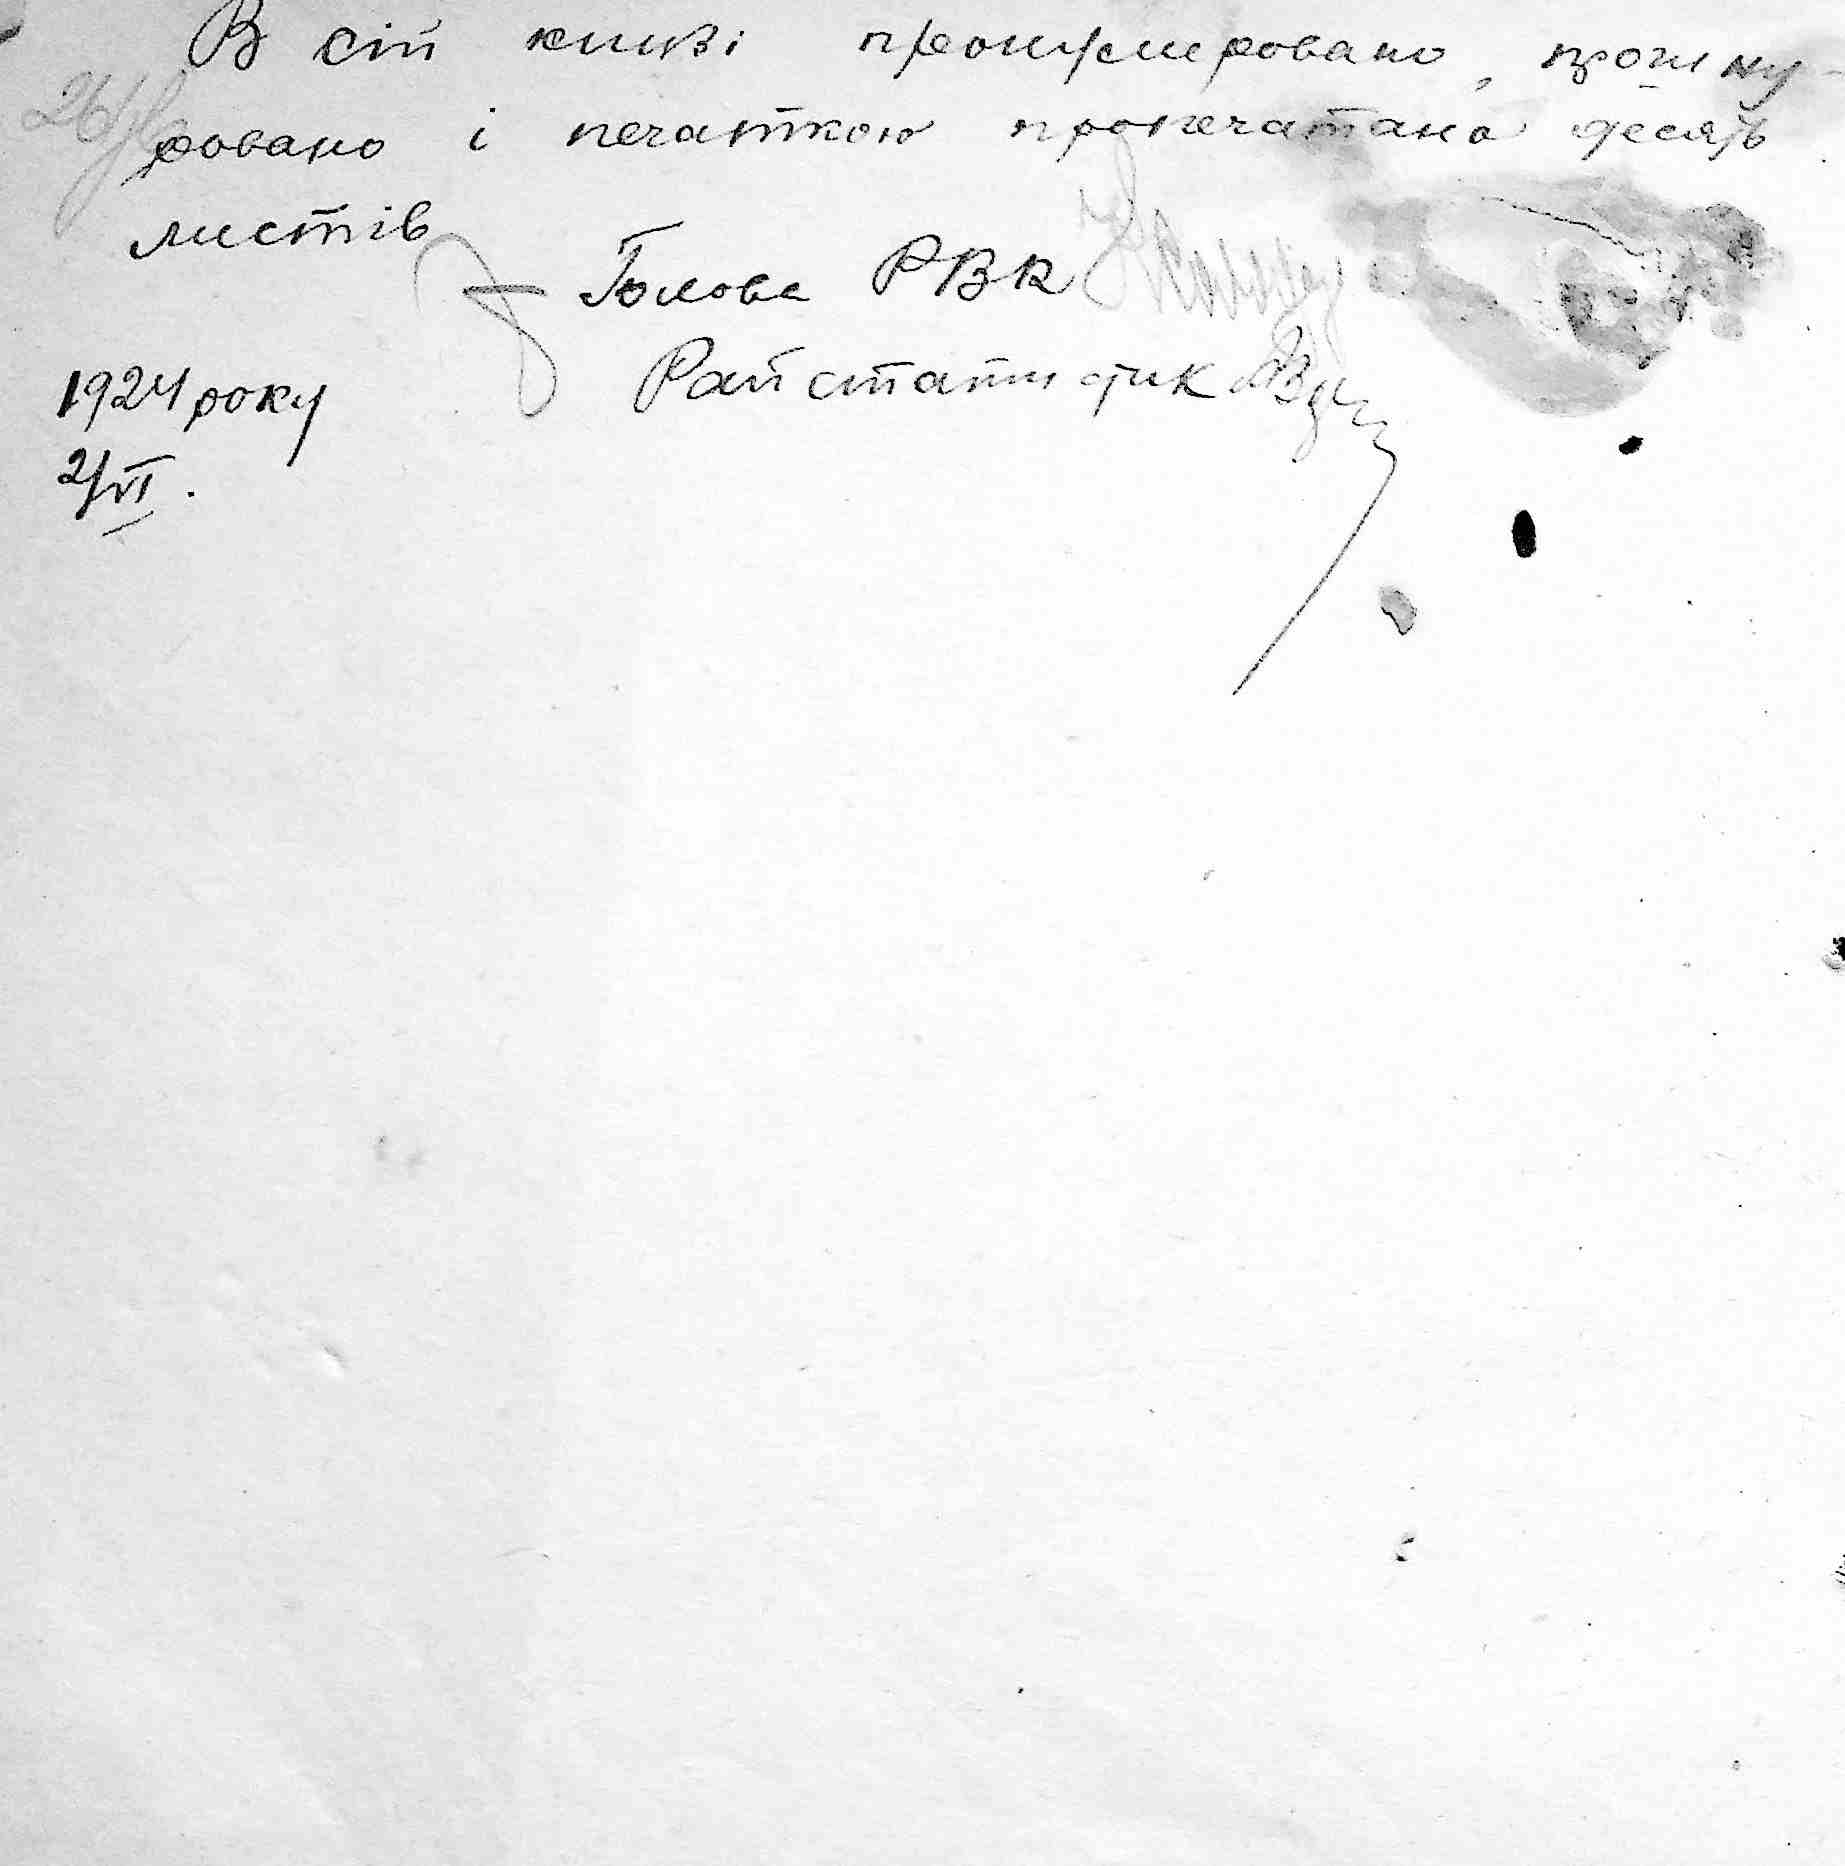 В сій книзі пронумеровано, прошну-
ровано і печаткою пропечатано десять
листів
Голова РВК
Райстатистик
1924 року
2/VI.